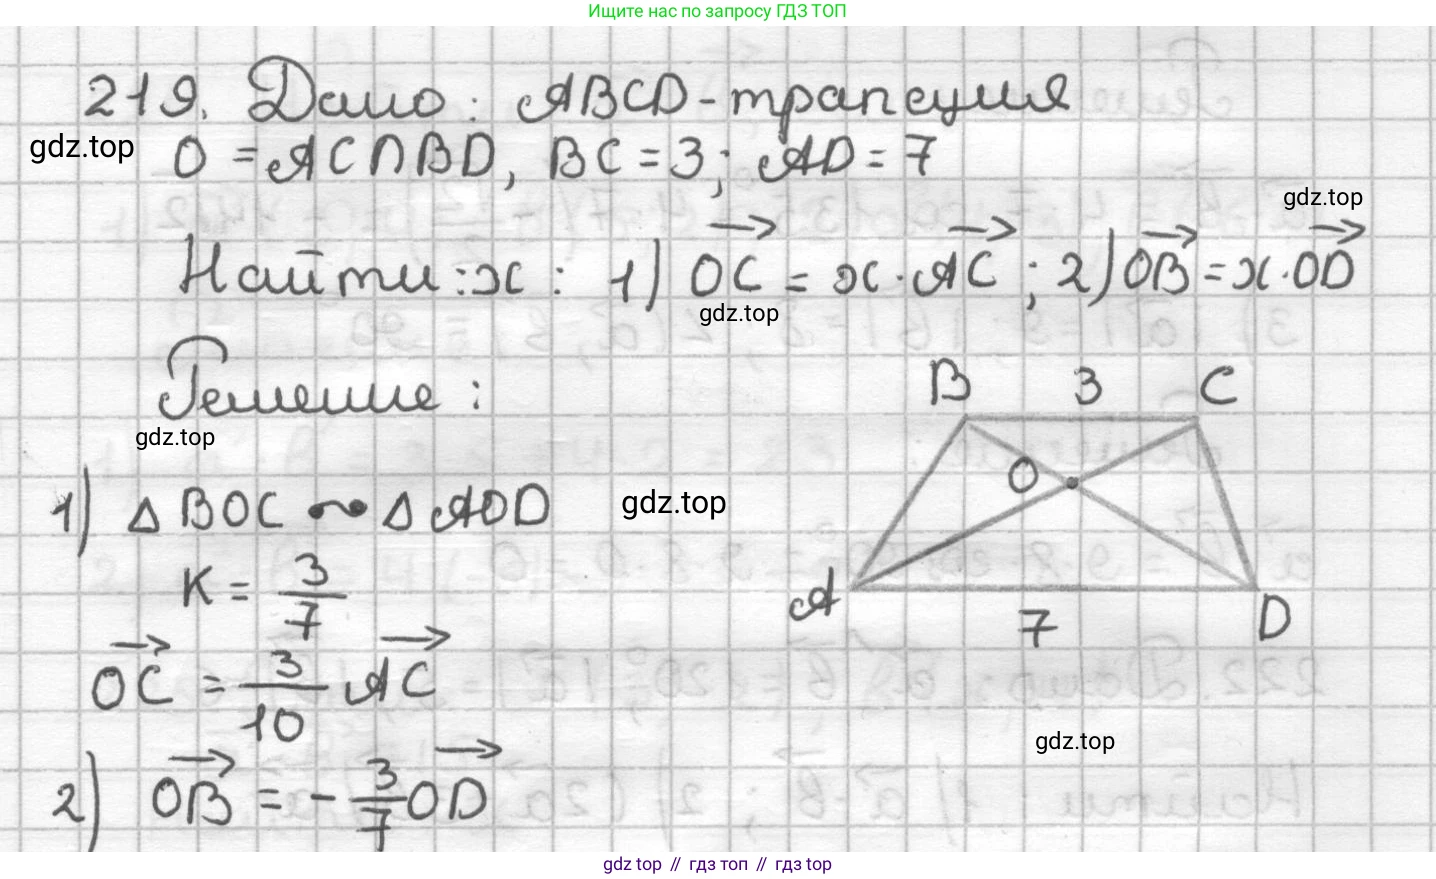 Ищите нас по запросу ГДЗ ТОП
219. Дано: ABCD - трапеция
gdz.top
O = AC ∩ BD, BC = 3; AD = 7
gdz.top
Найти: x: 1) OC = x · AC; 2) OB = x · OD
gdz.top
Решение:
B 3 C
gdz.top
O
1) △ BOC ∾ △ AOD
gdz.top
K = 3/7
A 7 D
OC = 3/10 AC
gdz.top
2) OB = - 3/7 OD
gdz top // гдз топ // гдз top